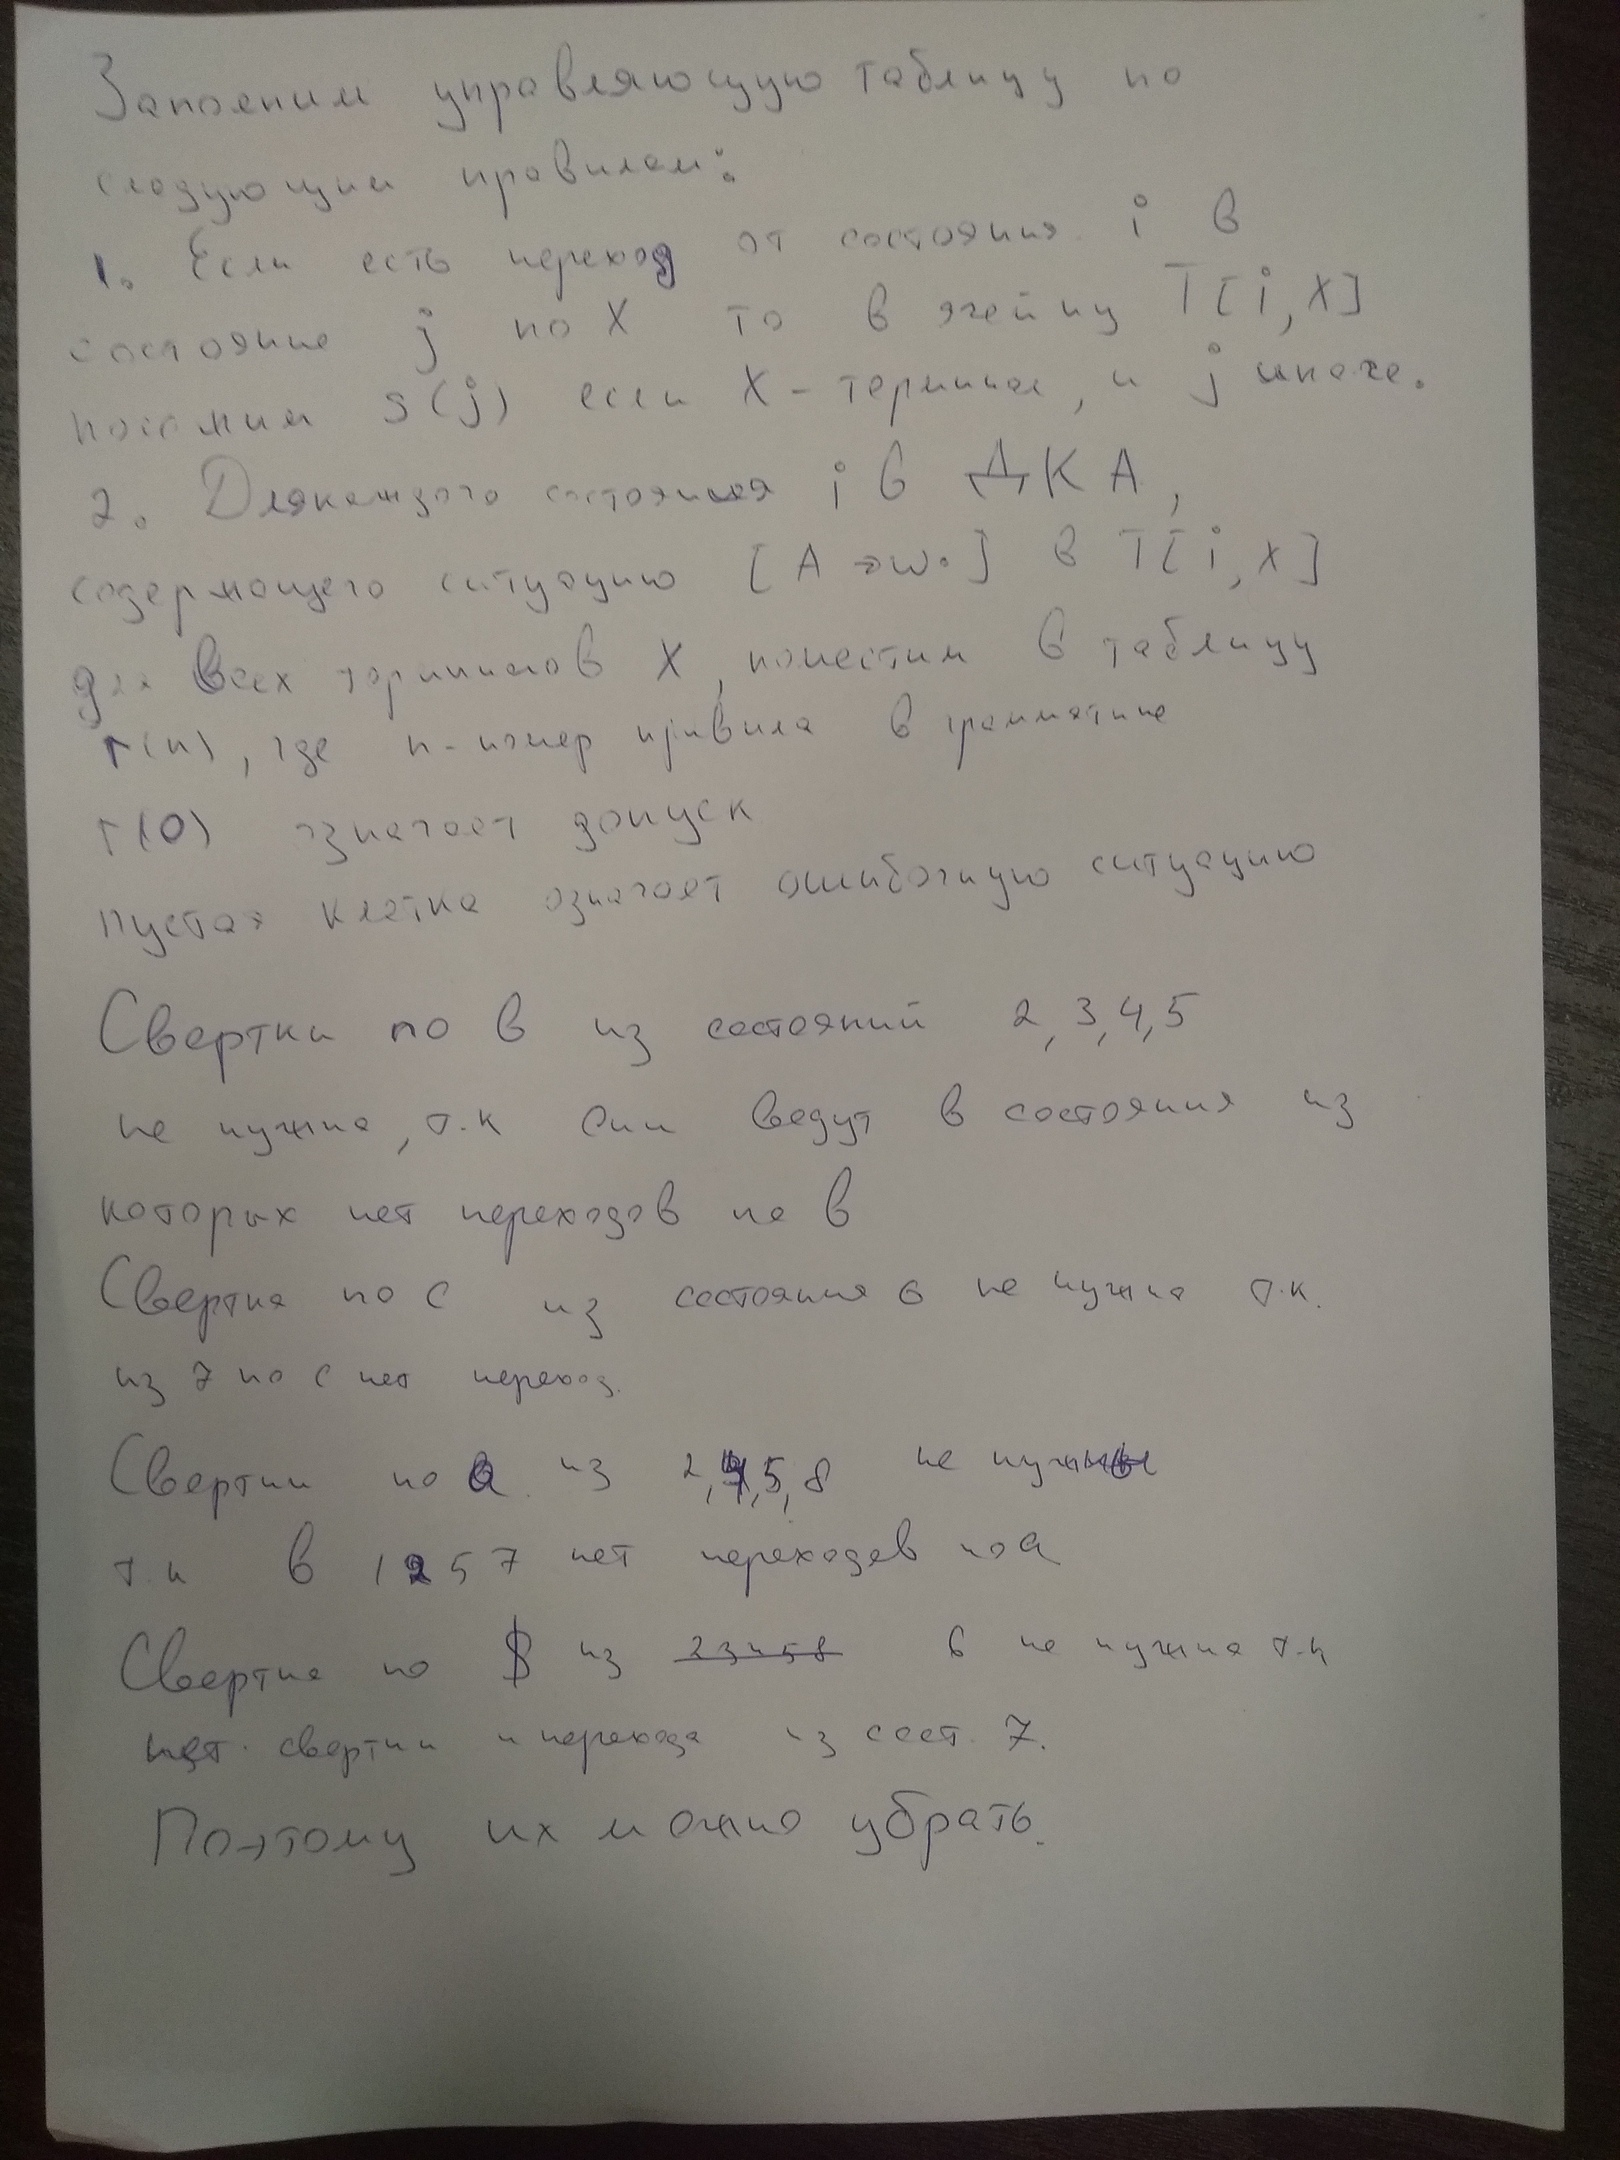 Заполним управляющую таблицу по
следующим правилам:
1. Если есть переход от состояния i в
состояние j по X то в ячейку T[i,X]
поставим s(j) если X - терминал, и j иначе.
2. Для каждого состояния i в ДКА,
содержащего ситуацию [A → w•] в T[i,X]
для всех терминалов X, поместим в таблицу
r(n), где n - номер правила в грамматике
r(0) означает допуск
пустая клетка означает ошибочную ситуацию
Свертки по b из состояний 2,3,4,5
не нужны, т.к они ведут в состояния из
которых нет переходов по b
Свертка по c из состояния 6 не нужна т.к.
из 7 по c нет переход.
Свертки по a из 2,4,5,8 не нужны
т.к в 1 2 5 7 нет переходов по a
Свертка по $ из 6 не нужна т.к
нет свертки и перехода из сост. 7.
Поэтому их можно убрать.